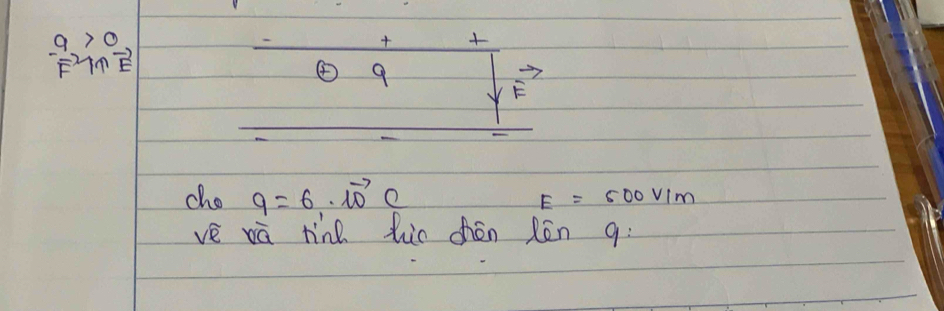 q > 0
F ↑↑ E
- + +
⊕ q
E
- - -
cho q = 6 . 10 C
E = 500 V/m
vẽ và tính lực điện lên q.